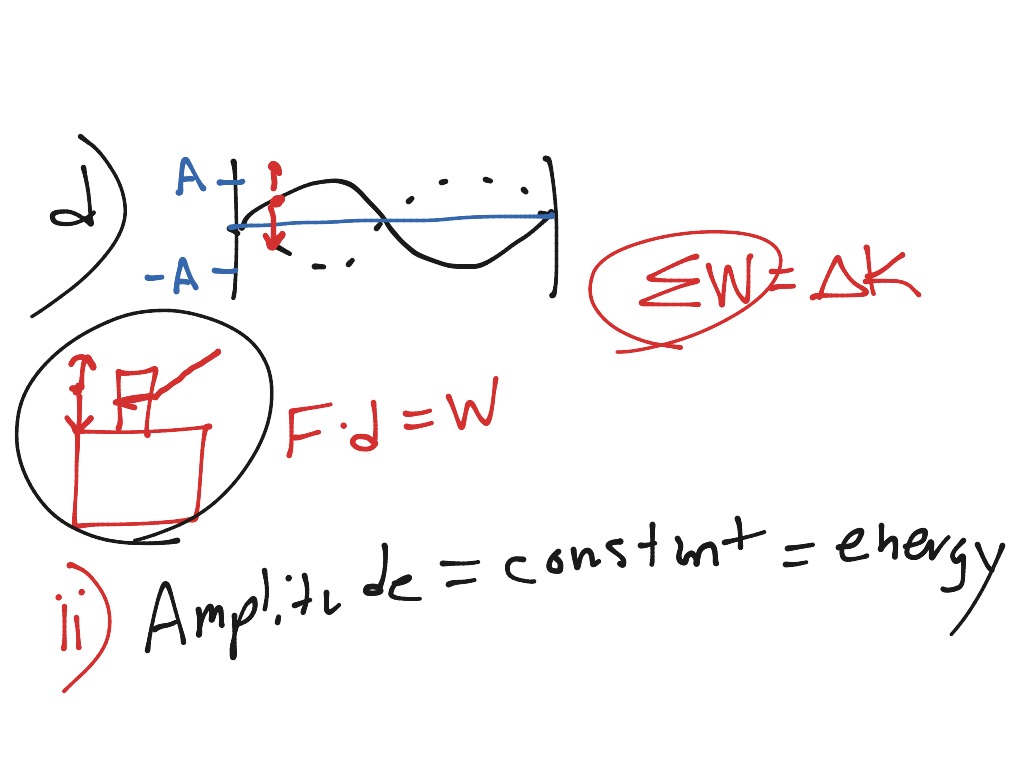 d)
A
-A
ΣW = ΔK
F·d = W
ii) Amplitude = constant = energy